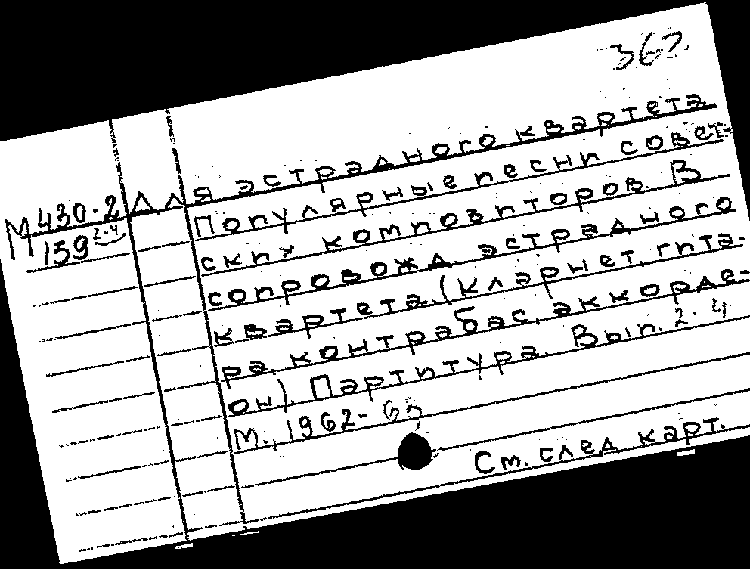 367.
М 430-2 Для эстрадного квартета
159 2-4 Популярные песни совет-
ских композиторов. В
сопровожд. эстрадного
квартета. (Кларнет, гита-
ра, контрабас, аккорде-
он). Партитура. Вып. 2-4
М., 1962-63
См. след карт.